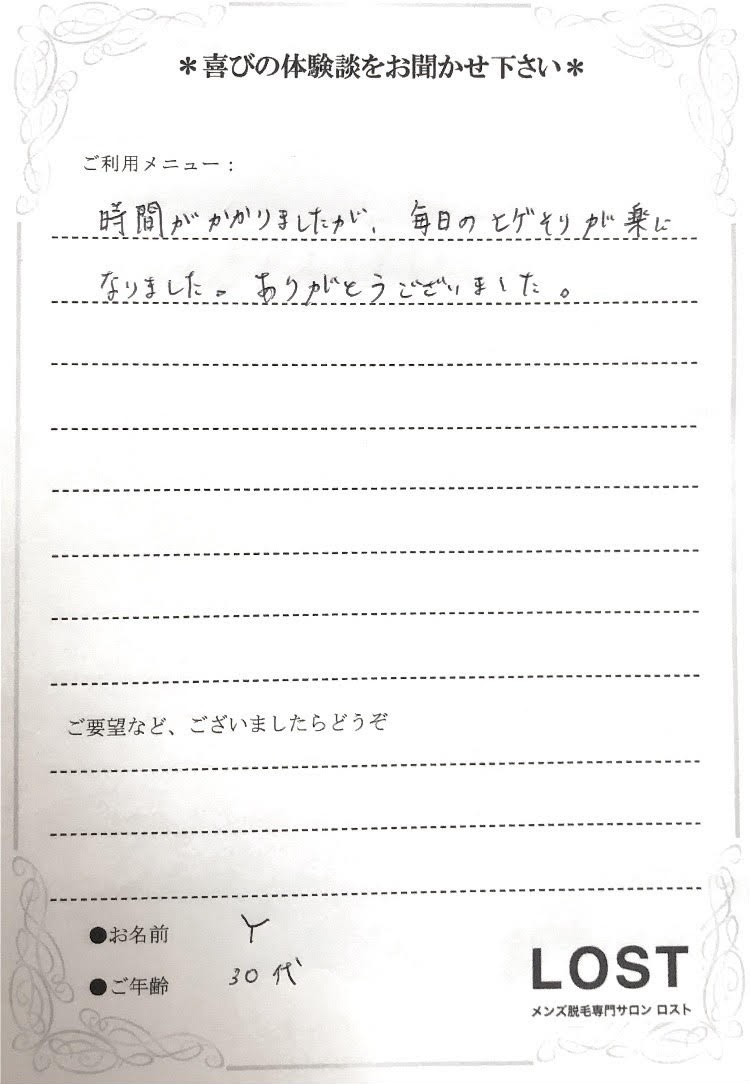 ＊喜びの体験談をお聞かせ下さい＊
ご利用メニュー：
時間がかかりましたが、毎日のヒゲそりが楽に
なりました。ありがとうございました。
ご要望など、ございましたらどうぞ
●お名前 Y
●ご年齢 30代
LOST
メンズ脱毛専門サロン ロスト